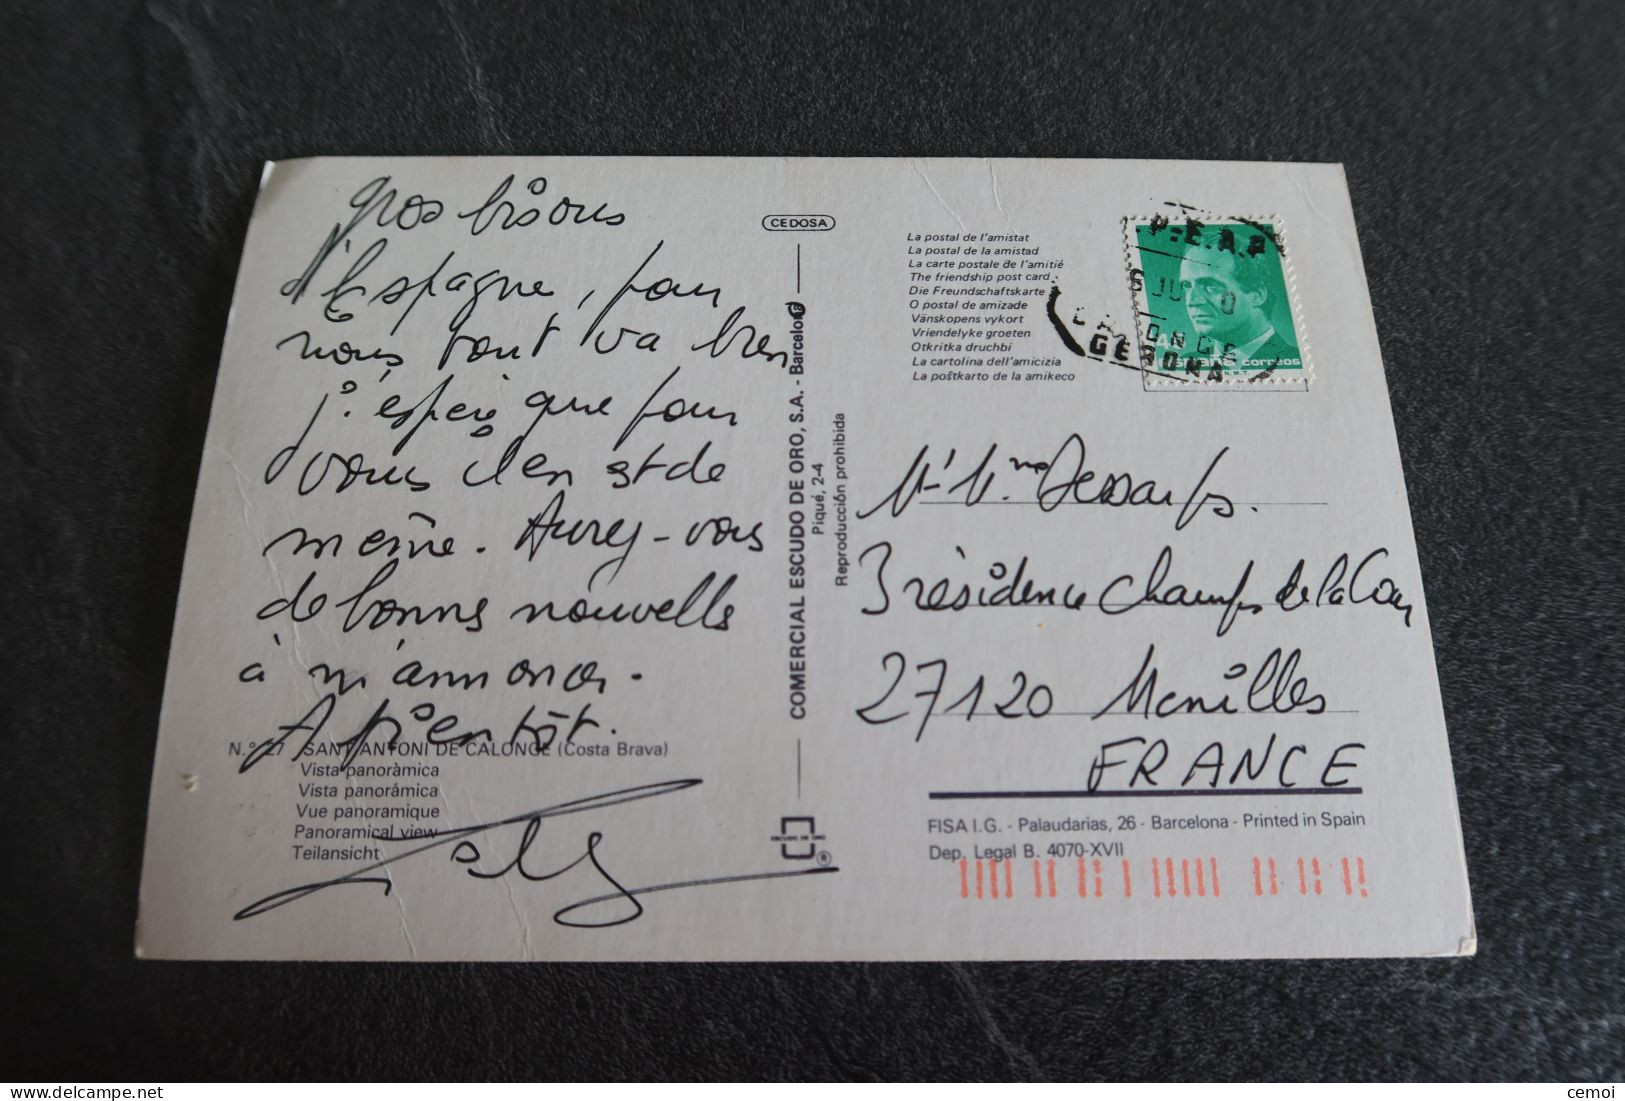 gros bisous
d'Espagne, pour
nous tout va bien
j'espère que pour
vous il en est de
même. Aurez-vous
de bonne nouvelle
à m'annoncer.
A bientôt.
N.° 27 SANT ANTONI DE CALONGE (Costa Brava)
Vista panoràmica
Vista panorámica
Vue panoramique
Panoramical view
Teilansicht
CEDOSA
COMERCIAL ESCUDO DE ORO, S.A. - Barcelona
Piqué, 2-4
Reproducción prohibida
ESCUDO DE ORO
®
La postal de l'amistat
La postal de la amistad
La carte postale de l'amitié
The friendship post card
Die Freundschaftskarte
O postal de amizade
Vänskopens vykort
Vriendelyke groeten
Otkritka druchbi
La cartolina dell'amicizia
La poŝtkarto de la amikeco
P.E.A.P
GERONA
españa correos
Mr Mme
3 résidence Champs de la Cour
27120 Menilles
FRANCE
FISA I.G. - Palaudarias, 26 - Barcelona - Printed in Spain
Dep. Legal B. 4070-XVII
cemoi